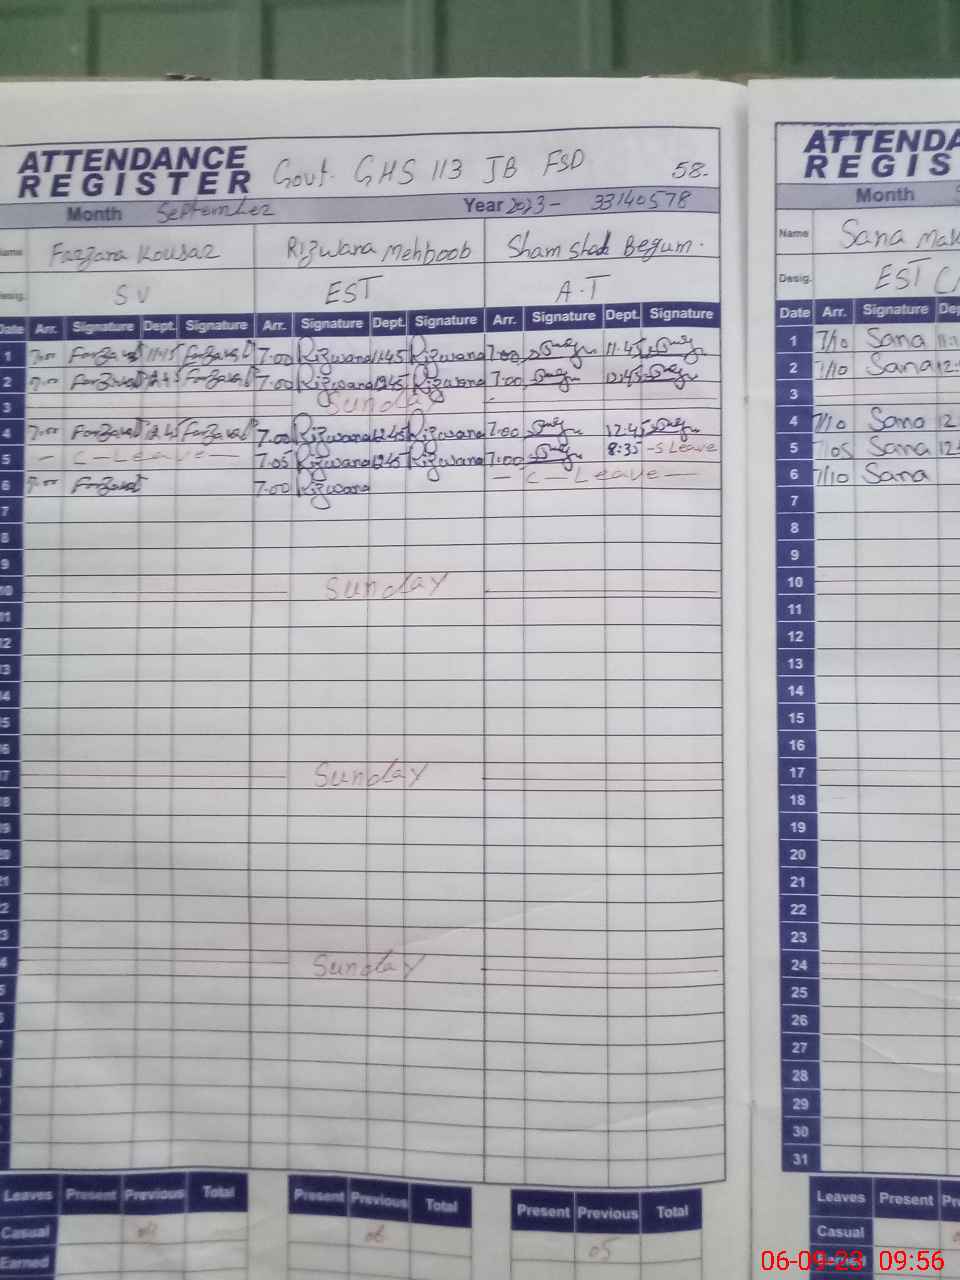 ATTENDANCE REGISTER Govt. GHS 113 JB FSD 58.
Month September Year 2023- 33140578
Name Farzana Kousar Rizwana Mehboob Shamshad Begum.
Desig. SV EST A.T
Date Arr. Signature Dept. Signature Arr. Signature Dept. Signature Arr. Signature Dept. Signature
1 7:00 11:45 7.00 Rizwana 11:45 Rizwana 7:00 11.45
2 7:00 12:45 7.00 Rizwana 12:45 Rizwana 7:00 12:45
3 Sunday
4 7:00 12:45 7.00 Rizwana 12:45 Rizwana 7:00 12:45
5 - C - Leave - 7.05 Rizwana 12:45 Rizwana 7:00 8:35 - S Leave
6 7:00 7.00 Rizwana - C - Leave -
7
8
9
10 Sunday
11
12
13
14
15
16
17 Sunday
18
19
20
21
22
23
24 Sunday
Leaves Present Previous Total Present Previous Total Present Previous Total
Casual 06 05
Earned
ATTENDA
REGIS
Month
Name Sana
Desig. EST
Date Arr. Signature Dep
1 7/10 Sana
2 7/10 Sana
3
4 7/10 Sana
5 7:05 Sana
6 7/10 Sana
7
8
9
10
11
12
13
14
15
16
17
18
19
20
21
22
23
24
25
26
27
28
29
30
31
Leaves Present Pre
Casual
Earned
06-09-23 09:56